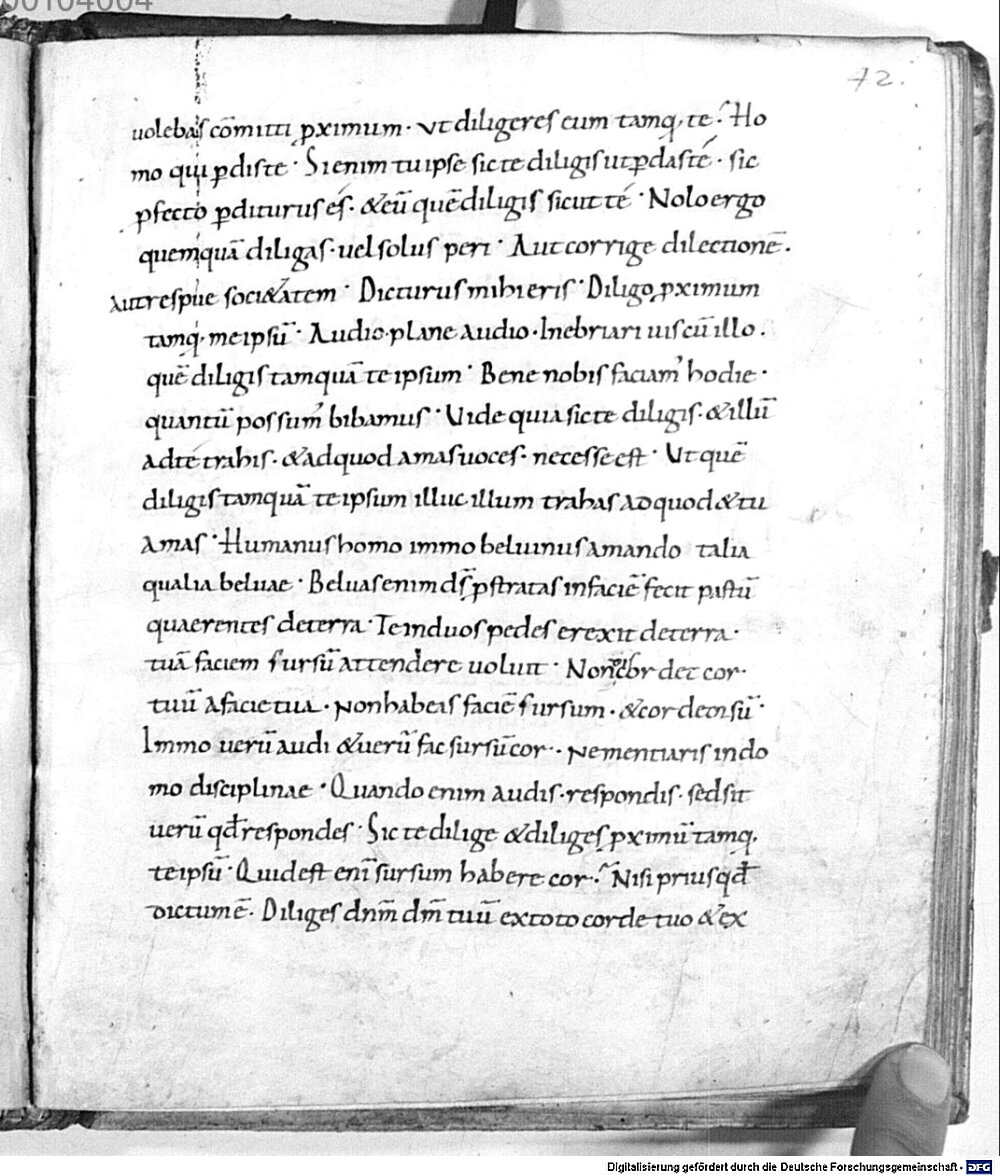 00104004
72.
uolebas cōmitti ꝓximum· ut diligeres eum tamq; te? Ho
mo qui ꝑdiste· Si enim tu ipse sic te diligis ut ꝑdas té· sic
ꝓfecto ꝑditurus és· &eū quē diligis sicut té· Nolo ergo
quemquā diligas· uel solus peri· Aut corrige dilectionē.
aut respue soci&atem· Dicturus mihi eris· Diligo ꝓximum
tamq; me ipsū· Audio· plane audio· Inebriari uis cū illo.
quē diligis tamquā te ipsum· Bene nobis faciam' hodie·
quantū possum' bibamus· Uide quia sic te diligis· &illū
ad té trahis· &ad quod amas uoces· necesse est· Ut quē
diligis tamquā te ipsum illuc illum trahas ad quod &tu
amas· Humanus homo immo beluinus amando talia
qualia beluae· Beluas enim ds̄ ꝓstratas in faciē fecit pastū
quaerentes de terra· Te in duos pedes erexit de terra·
tuā faciem sursū attendere uoluit· Non dec cor·
tuū a facie tua· Non habeas faciē sursum· &cor deorsū·
Immo uerū audi &uerū fac sursū cor· Ne mentiaris in do
mo disciplinae· Quando enim audis· respondis· sed sit
uerū qđ respondes· Sic te dilige &diliges ꝓximū tamq;
te ipsū· Quid est enī sursum habere cor? Nisi prius qđ
dictum ē· Diliges dnm̄ dm̄ tuū ex toto corde tuo &ex
Digitalisierung gefördert durch die Deutsche Forschungsgemeinschaft - DFG